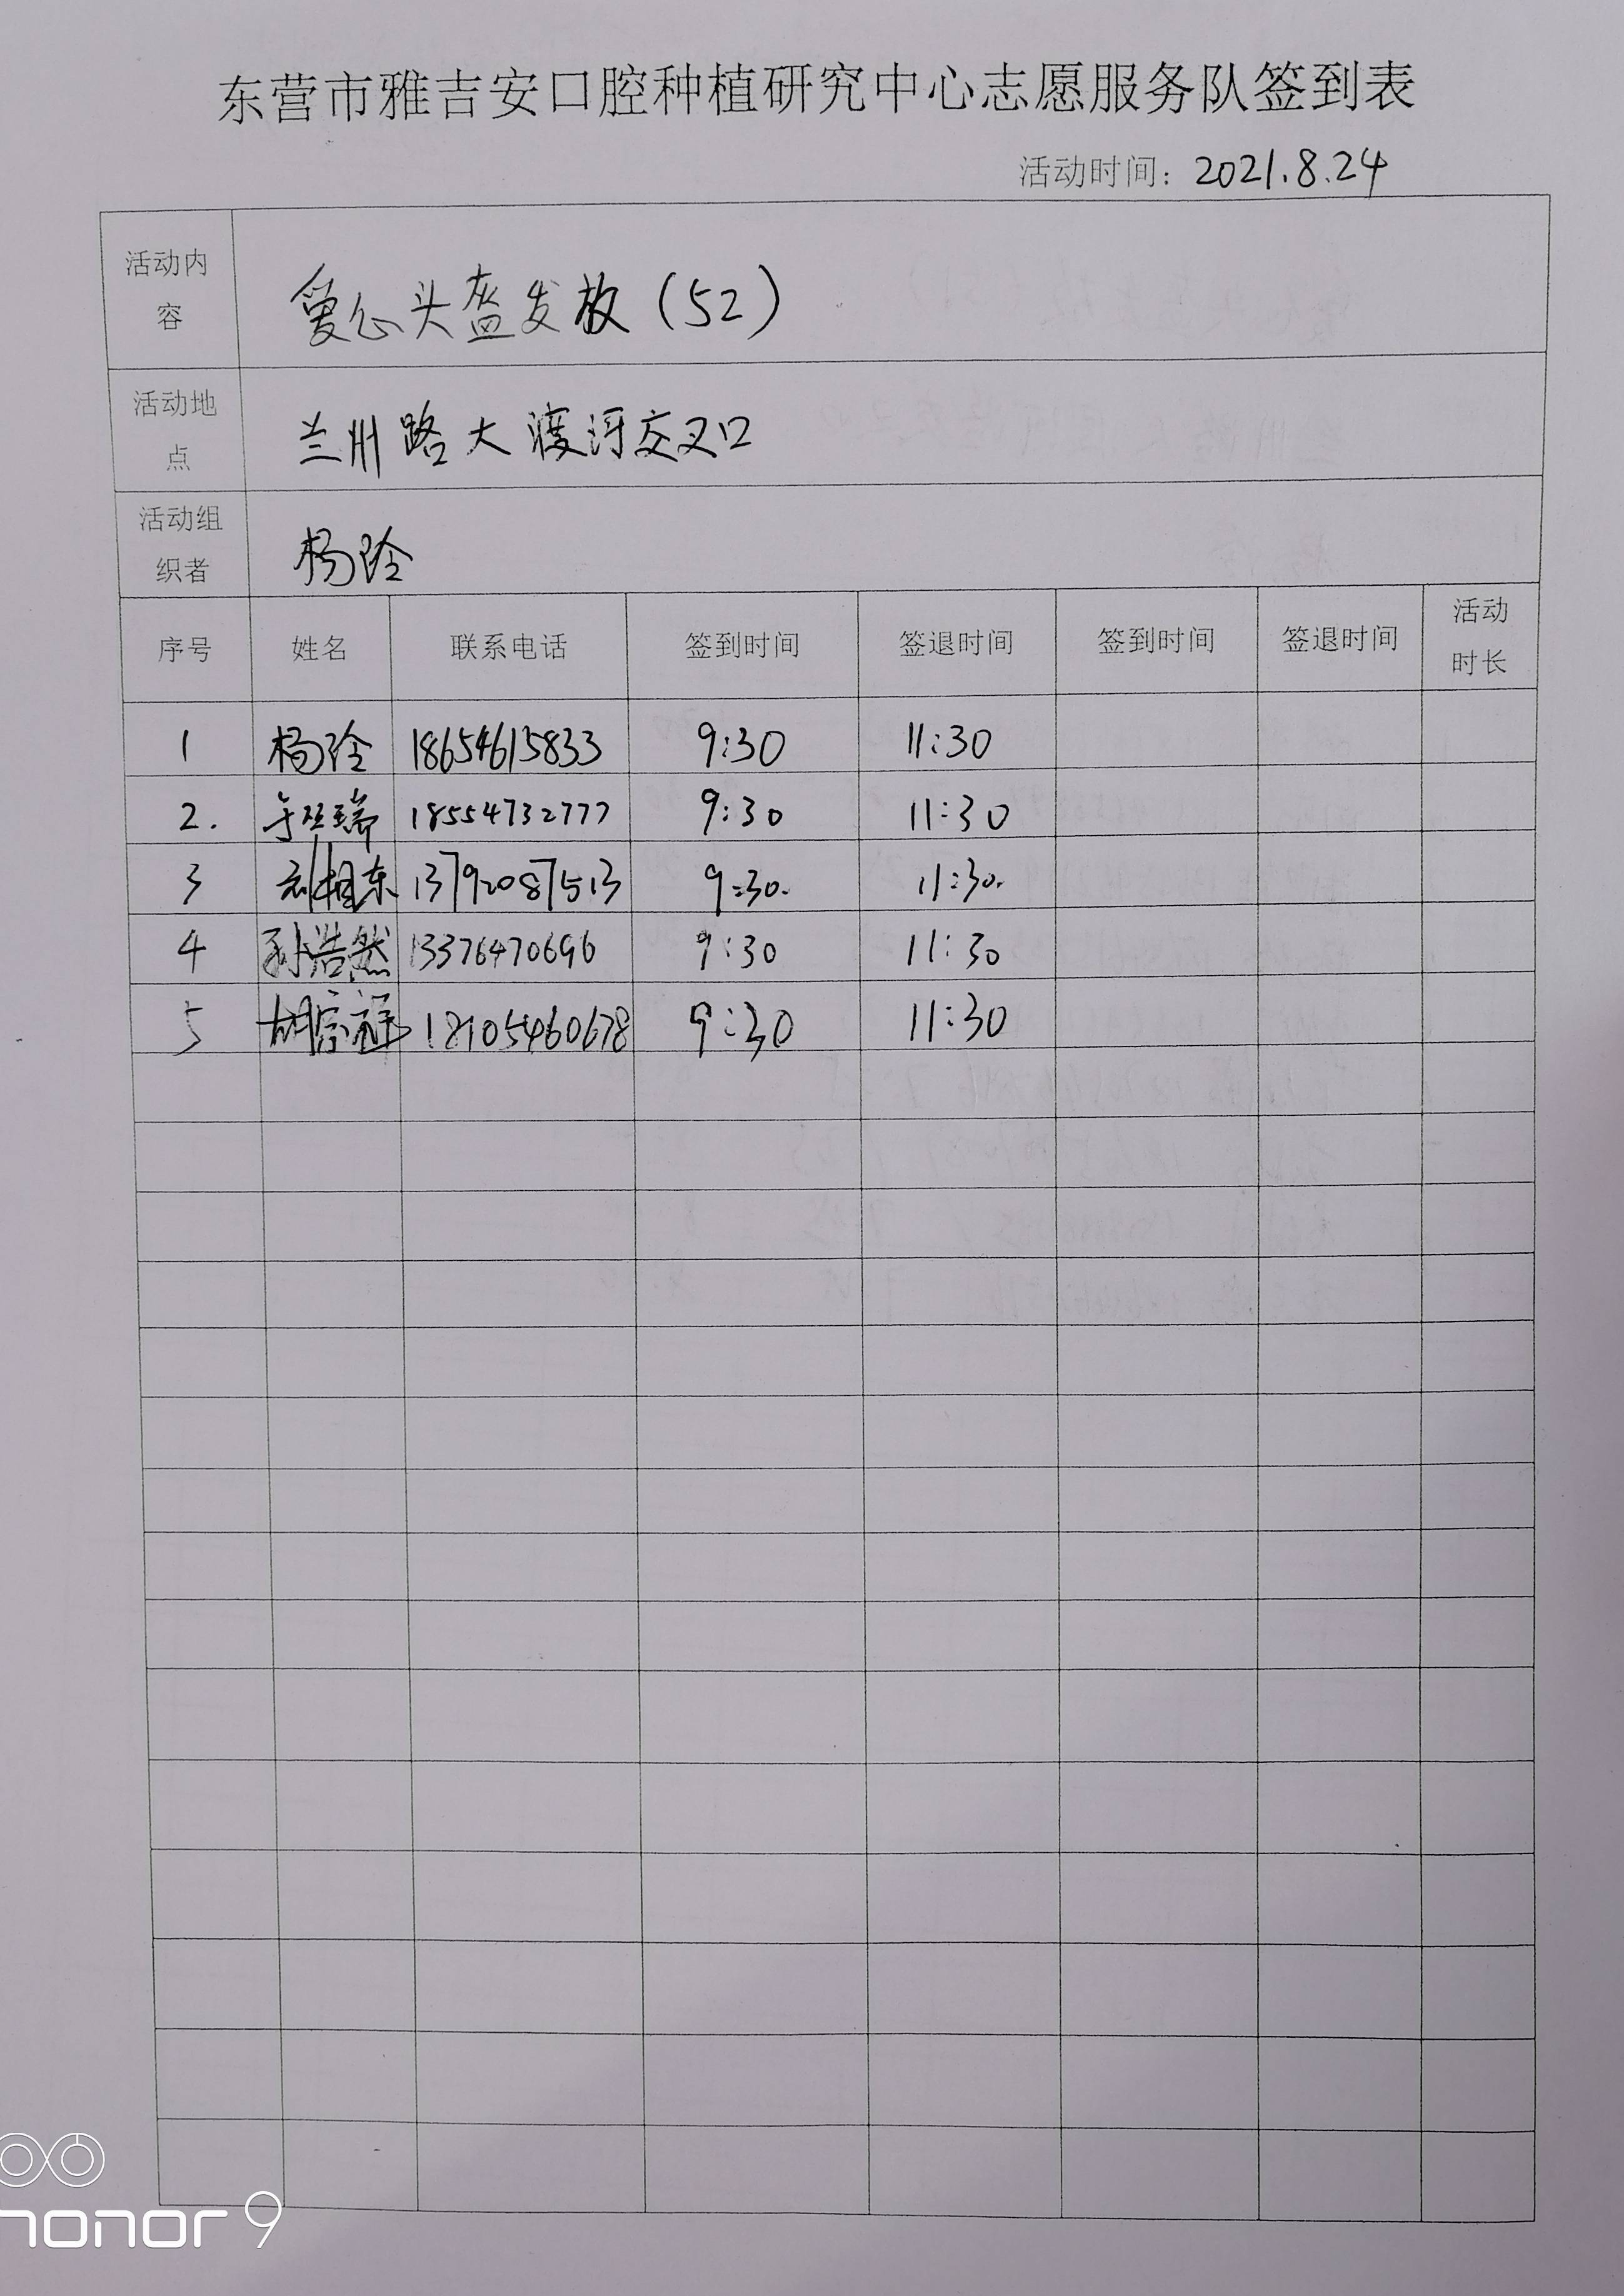 东营市雅吉安口腔种植研究中心志愿服务队签到表
活动时间：2021.8.24
活动内容 爱心头盔发放（52）
活动地点 兰州路大渡河交叉口
活动组织者 杨玲
序号 姓名 联系电话 签到时间 签退时间 签到时间 签退时间 活动时长
1 杨玲 18654615833 9:30 11:30
2. 18554732777 9:30 11:30
3 刘相东 13792087513 9:30. 11:30.
4 孙浩然 13376470696 9:30 11:30
5 胡宗祥 18105460678 9:30 11:30
honor 9